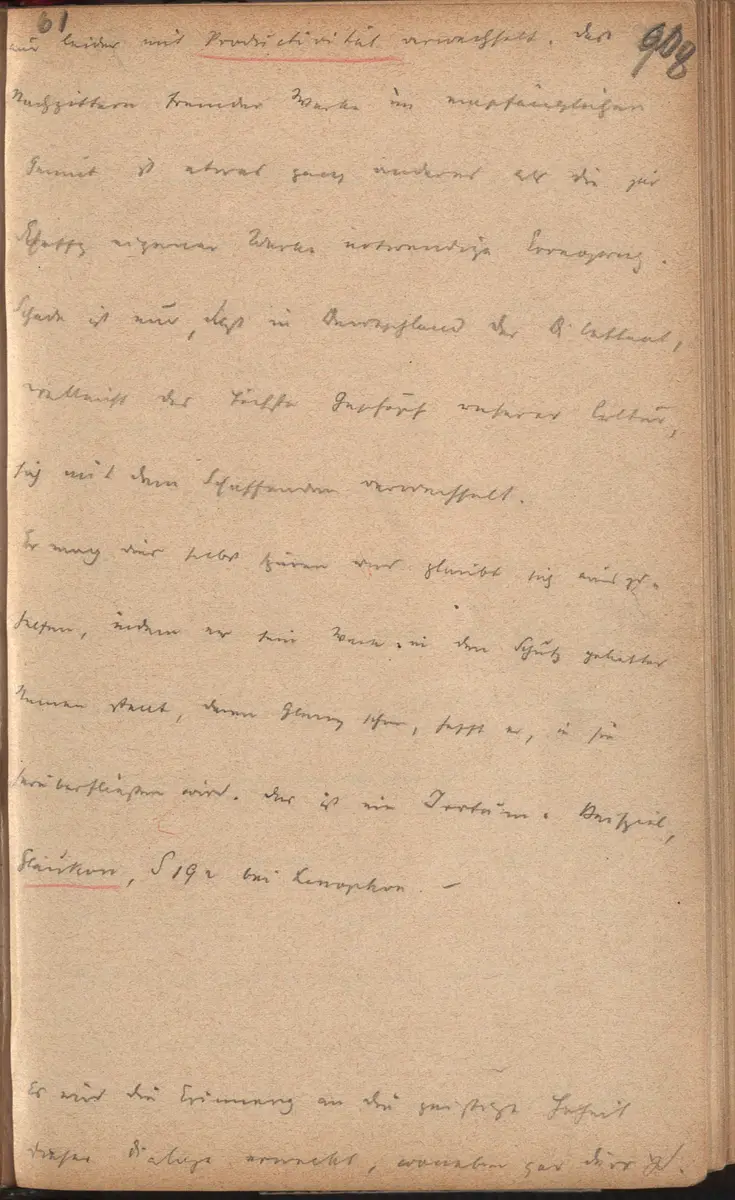 61
nur leider mit Productivität verwechselt. Das
Nachzittern fremder Werke im empfänglichen
Gemüt ist etwas ganz anderes als die zur
Schaffg eigener Werke notwendige Erregung.
Schade ist nur, dass in Deutschland der Dilettant,
vielleicht das höchste Geschöpf unserer Cultur,
sich mit dem Schaffenden verwechselt.
Er mag dies selbst spüren und glaubt sich
helfen, indem er sein Werk in den Schutz geliebter
Namen stellt, deren Glanz schon, hofft er, in sie
herüberfliessen wird. Das ist ein Irrtum. Beispiel,
Glaukon, S 192 bei Xenophon. –
Es wird die Erinnerung an die geistige Hoheit
dieser Dialoge erweckt, woneben gar